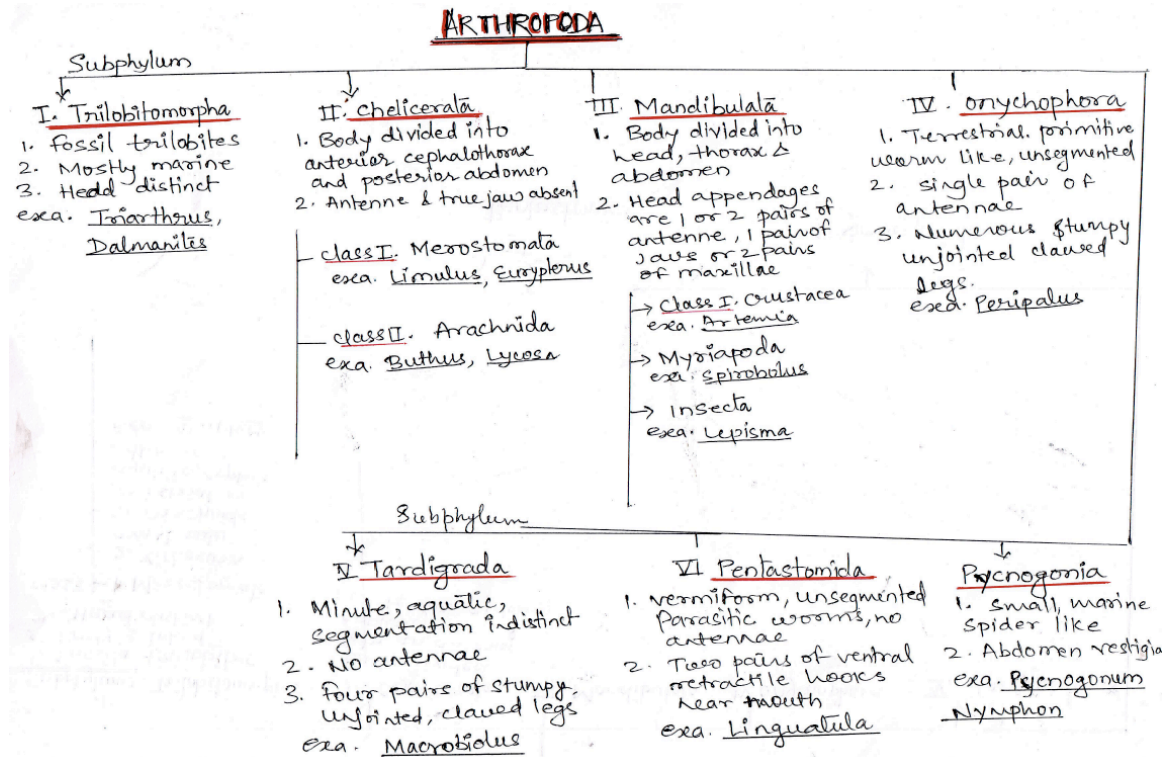 ARTHROPODA
Subphylum
I. Trilobitomorpha
1. Fossil trilobites
2. Mostly marine
3. Head distinct
exa. Triarthrus,
Dalmanites
II. Chelicerata
1. Body divided into
anterior cephalothorax
and posterior abdomen
2. Antenne & true jaw absent
class I. Merostomata
exa. Limulus, Eurypterus
class II. Arachnida
exa. Buthus, Lycosa
III. Mandibulata
1. Body divided into
head, thorax &
abdomen
2. Head appendages
are 1 or 2 pairs of
antenne, 1 pair of
jaws or 2 pairs
of maxillae
→ Class I. Crustacea
exa. Artemia
→ Myriapoda
exa. Spirobolus
→ Insecta
exa. Lepisma
IV. onychophora
1. Terrestrial. primitive
worm like, unsegmented
2. single pair of
antennae
3. Numerous stumpy
unjointed clawed
legs.
exa. Peripalus
Subphylum
V Tardigrada
1. Minute, aquatic,
segmentation indistinct
2. No antennae
3. four pairs of stumpy,
unjointed, clawed legs
exa. Macrobiolus
VI Pentastomida
1. vermiform, unsegmented
Parasitic worms, no
antennae
2. Two pairs of ventral
retractile hooks
near mouth
exa. Linguatula
Psycnogonia
1. Small, marine
spider like
2. Abdomen vestigia
exa. Psycnogonum
Nymphon